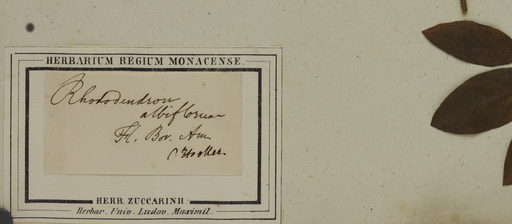 HERBARIUM REGIUM MONACENSE.
Rhododendron
albiflorum
Fl. Bor. Am.
C. Hooker.
HERB. ZUCCARINII
Herbar. Univ. Ludov. Maximil.